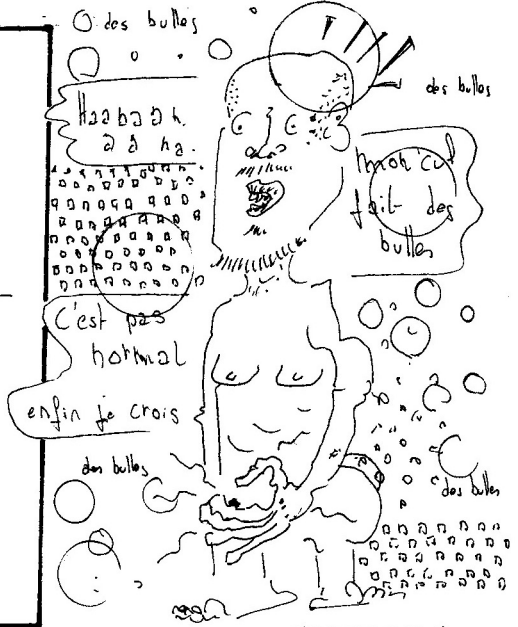 des bulles
des bulles
Haabaah
a a ha.
mon cul
fait des
bulles
C'est pas
normal
enfin je crois
des bulles
des bulles